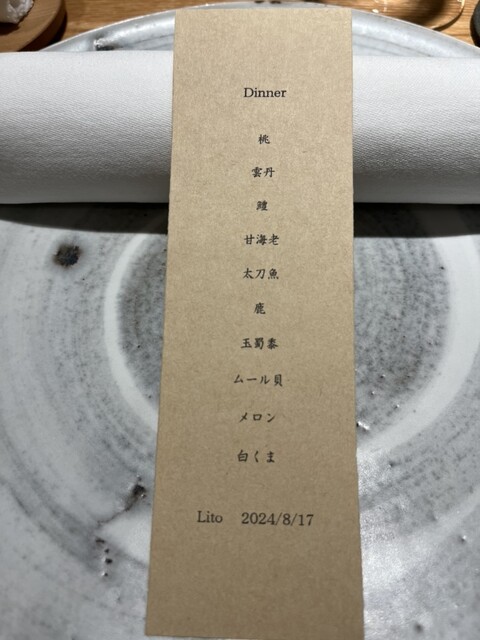 Dinner
桃
雲丹
鱧
甘海老
太刀魚
鹿
玉蜀黍
ムール貝
メロン
白くま
Lito 2024/8/17